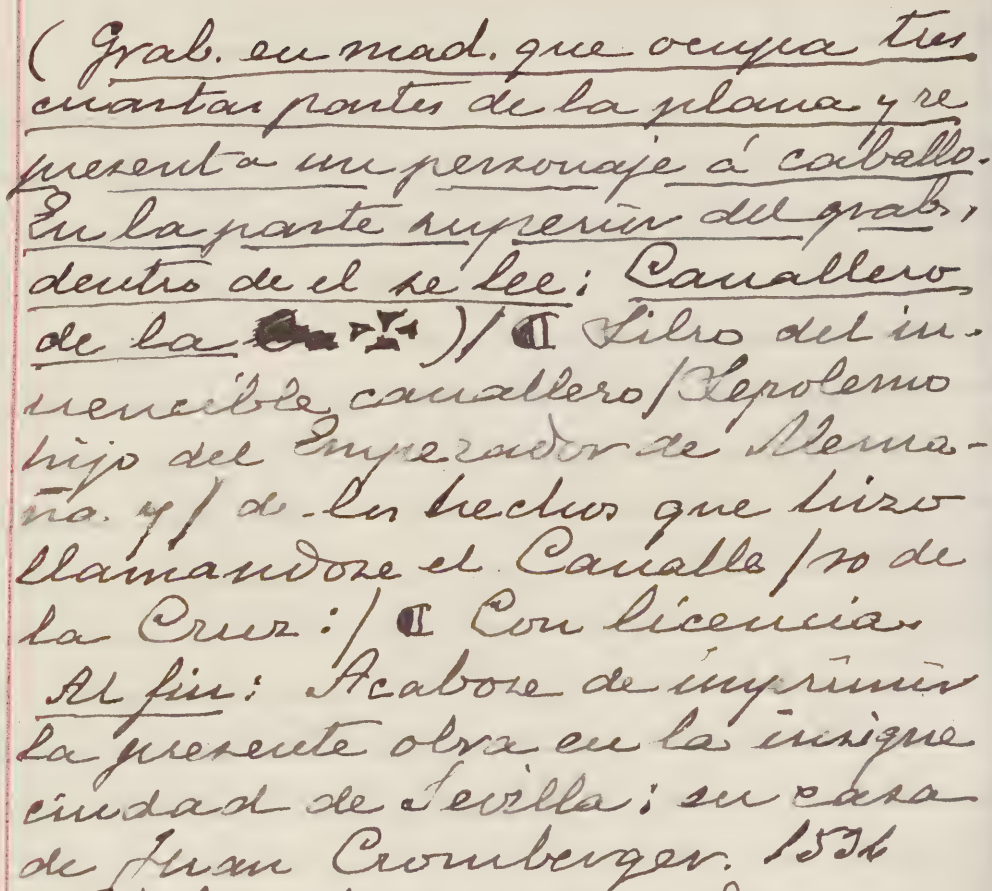 ( Grab. en mad. que ocupa tres
cuartas partes de la plana y re
presenta un personaje á caballo.
En la parte superior del grab.,
dentro de el se lee: Cauallero
de la ✠ )/ ¶ Libro del in-
uencible cauallero / Lepolemo
hijo del Emperador de Alema-
ña. y / de los hechos que hizo
llamandose el Caualle / ro de
la Cruz : / ¶ Con licencia.
Al fin: Acabose de imprimir
la presente obra en la insigne
ciudad de Sevilla; en casa
de Juan Cromberger.